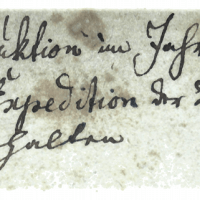 uktion im Jahr
Expedition der
halten